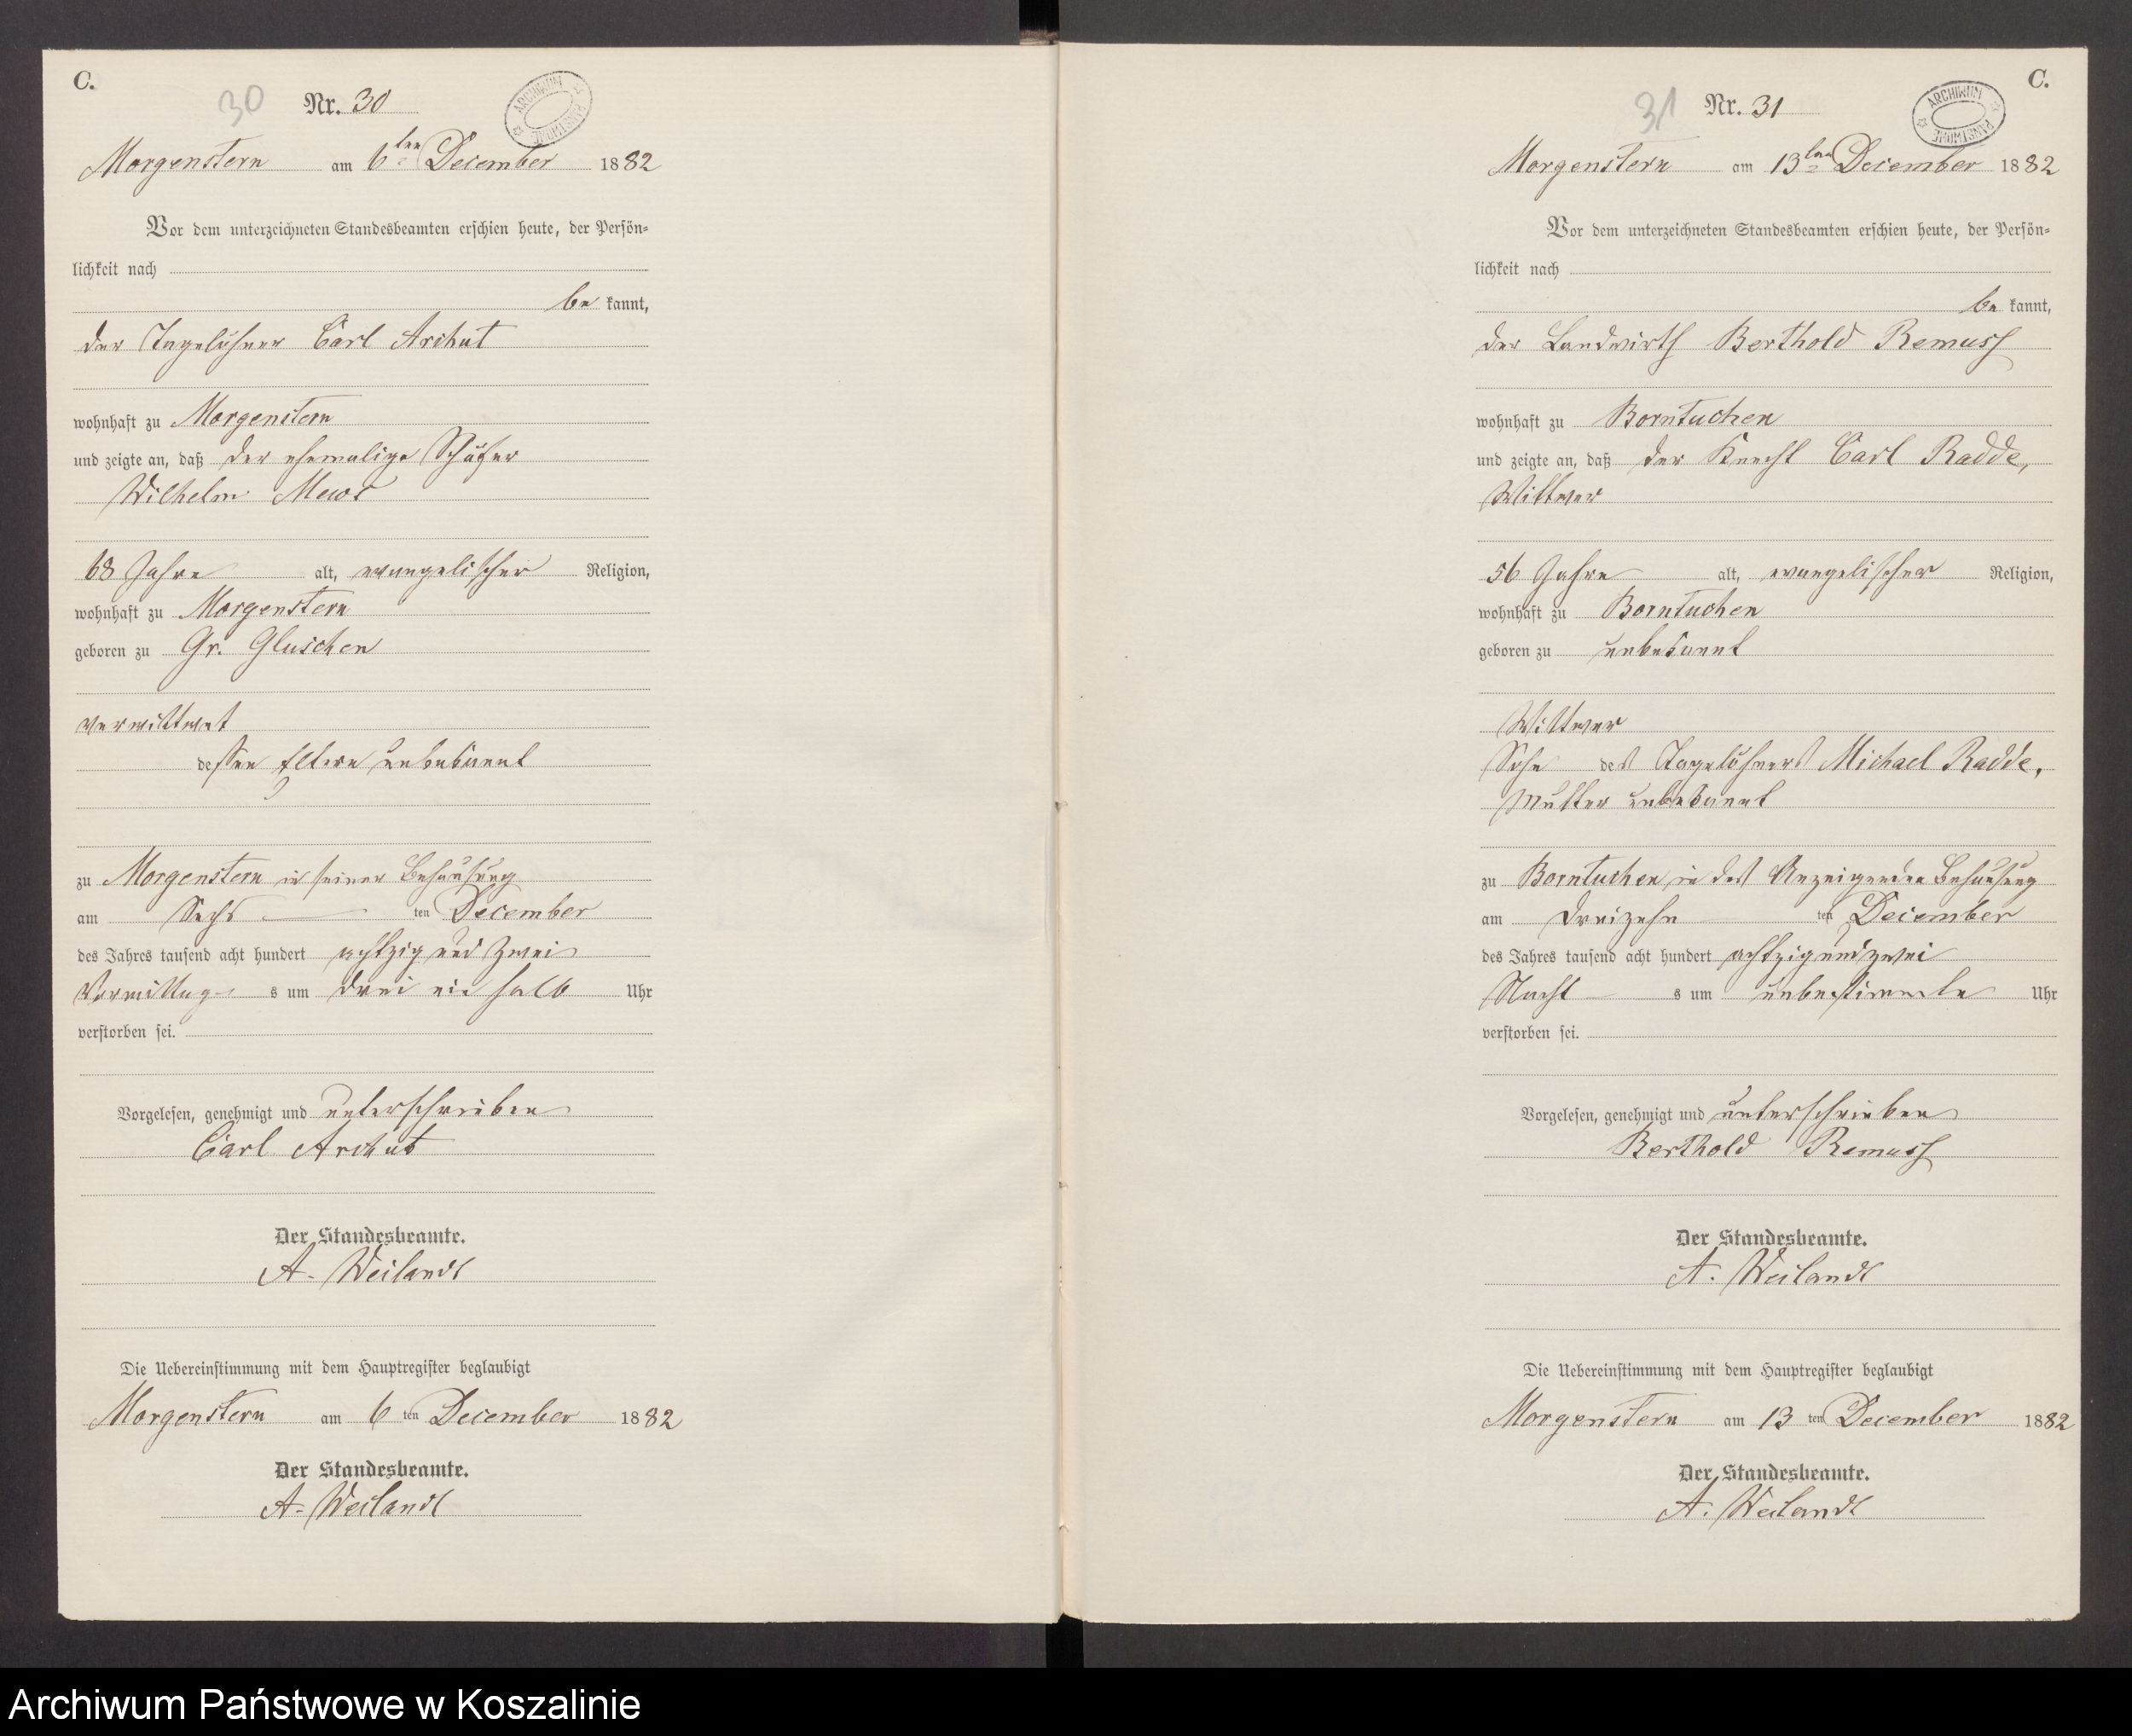 C.
30 Nr. 30
ARCHIWUM PAŃSTWOWE
Morgenstern am 6ten December 1882
Vor dem unterzeichneten Standesbeamten erschien heute, der Persön-
lichkeit nach
be kannt,
der Tagelöhner Carl Archut
wohnhaft zu Morgenstern
und zeigte an, daß der ehemalige Schäfer
Wilhelm Mews
68 Jahre alt, evangelischer Religion,
wohnhaft zu Morgenstern
geboren zu Gr. Gluschen
verwittwet
dessen Eltern unbekannt
zu Morgenstern in seiner Behausung
am Sechs ten December
des Jahres tausend acht hundert achtzig und zwei
Vormittag s um drei ein halb Uhr
verstorben sei.
Vorgelesen, genehmigt und unterschrieben
Carl Archut
Der Standesbeamte.
A. Weilandt
Die Uebereinstimmung mit dem Hauptregister beglaubigt
Morgenstern am 6 ten December 1882
Der Standesbeamte.
A. Weilandt
C.
31 Nr. 31
ARCHIWUM PAŃSTWOWE
Morgenstern am 13ten December 1882
Vor dem unterzeichneten Standesbeamten erschien heute, der Persön-
lichkeit nach
be kannt,
der Landwirth Berthold Remuss
wohnhaft zu Borntuchen
und zeigte an, daß der Knecht Carl Radde,
Wittwer
56 Jahre alt, evangelischer Religion,
wohnhaft zu Borntuchen
geboren zu unbekannt
Wittwer
Sohn des Tagelöhners Michael Radde,
Mutter unbekannt
zu Borntuchen in des Anzeigenden Behausung
am dreizehn ten December
des Jahres tausend acht hundert achtzig und zwei
Nacht s um unbestimmte Uhr
verstorben sei.
Vorgelesen, genehmigt und unterschrieben
Berthold Remuss
Der Standesbeamte.
A. Weilandt
Die Uebereinstimmung mit dem Hauptregister beglaubigt
Morgenstern am 13 ten December 1882
Der Standesbeamte.
A. Weilandt
Archiwum Państwowe w Koszalinie